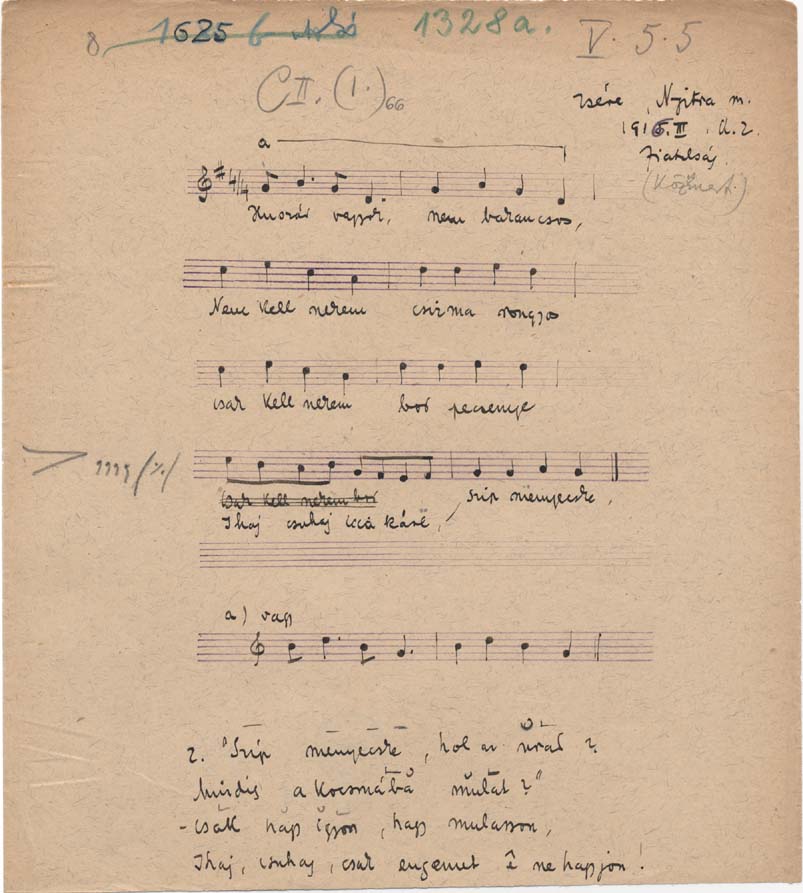 8 1625 b 1328a. V. 5.5
C II. (I.) 66
Zsére, Nyitra m.
1916. II. K. Z.
fiatalság
a
Huszár vagyok, nem bakancsos,
Nem kell nekem csizma rongyos
csak kell nekem bor pecsenye
csak kell nekem bor szíp menyecske,
Ihaj csuhaj icca káré,
a) vagy
2. "Szíp menyecske, hol az urad?
Mindig a kocsmába mulat?"
- csak hagy igyon, hagy mulasson,
Ihaj, csuhaj, csak engemet ne hagyjon!